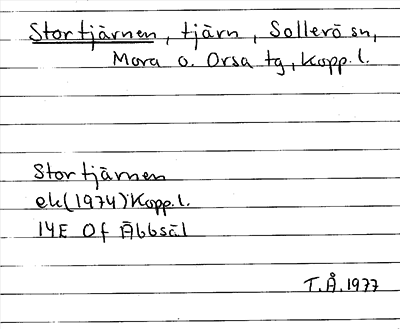 Stortjärnen, tjärn, Sollerö sn,
Mora o. Orsa tg, Kopp.l.
Stortjärnen
ek(1974)Kopp.l.
14E 0f Äbbsäl
T.Å.1977